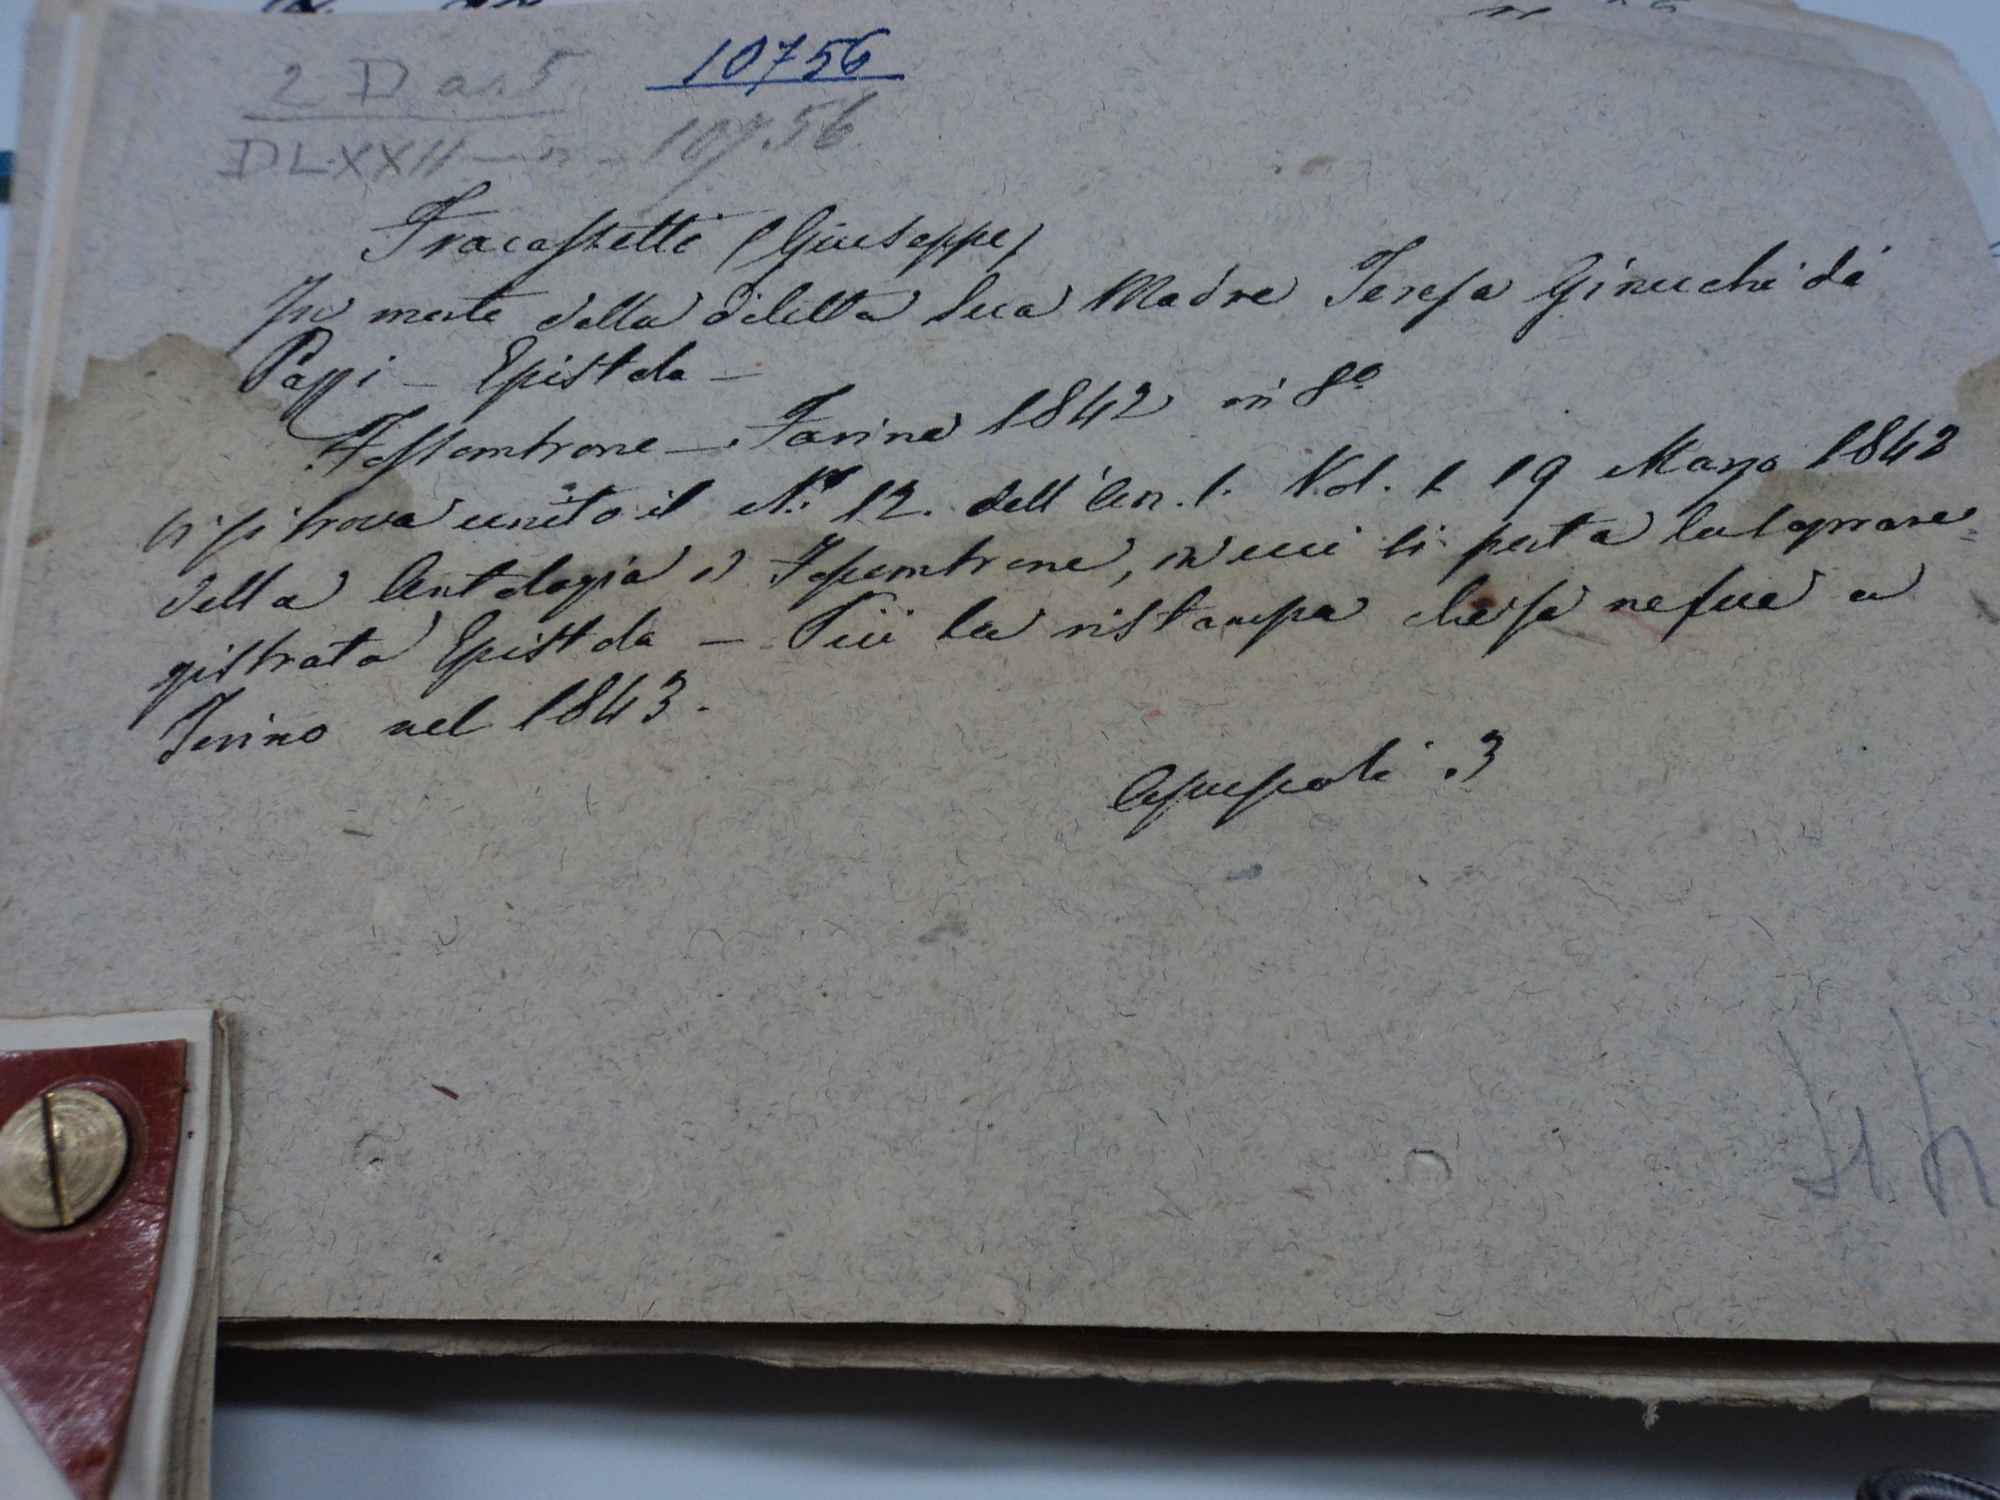 10756
2 D a. 5
DLXXII — n. 10756
Fracassetti (Giuseppe)
In morte della diletta sua Madre Teresa Ginucchi dé
Pazzi — Epistola —
Fossombrone — Farina 1842 in 8º
Vi si trova unito il N.º 12. dell'An. 1. Vol. 1 19 Marzo 1842
della Antologia di Fossombrone, in cui si porta la soprare=
gistrata Epistola — Più la ristampa che se ne fue a
Torino nel 1843.
Opuscoli .3